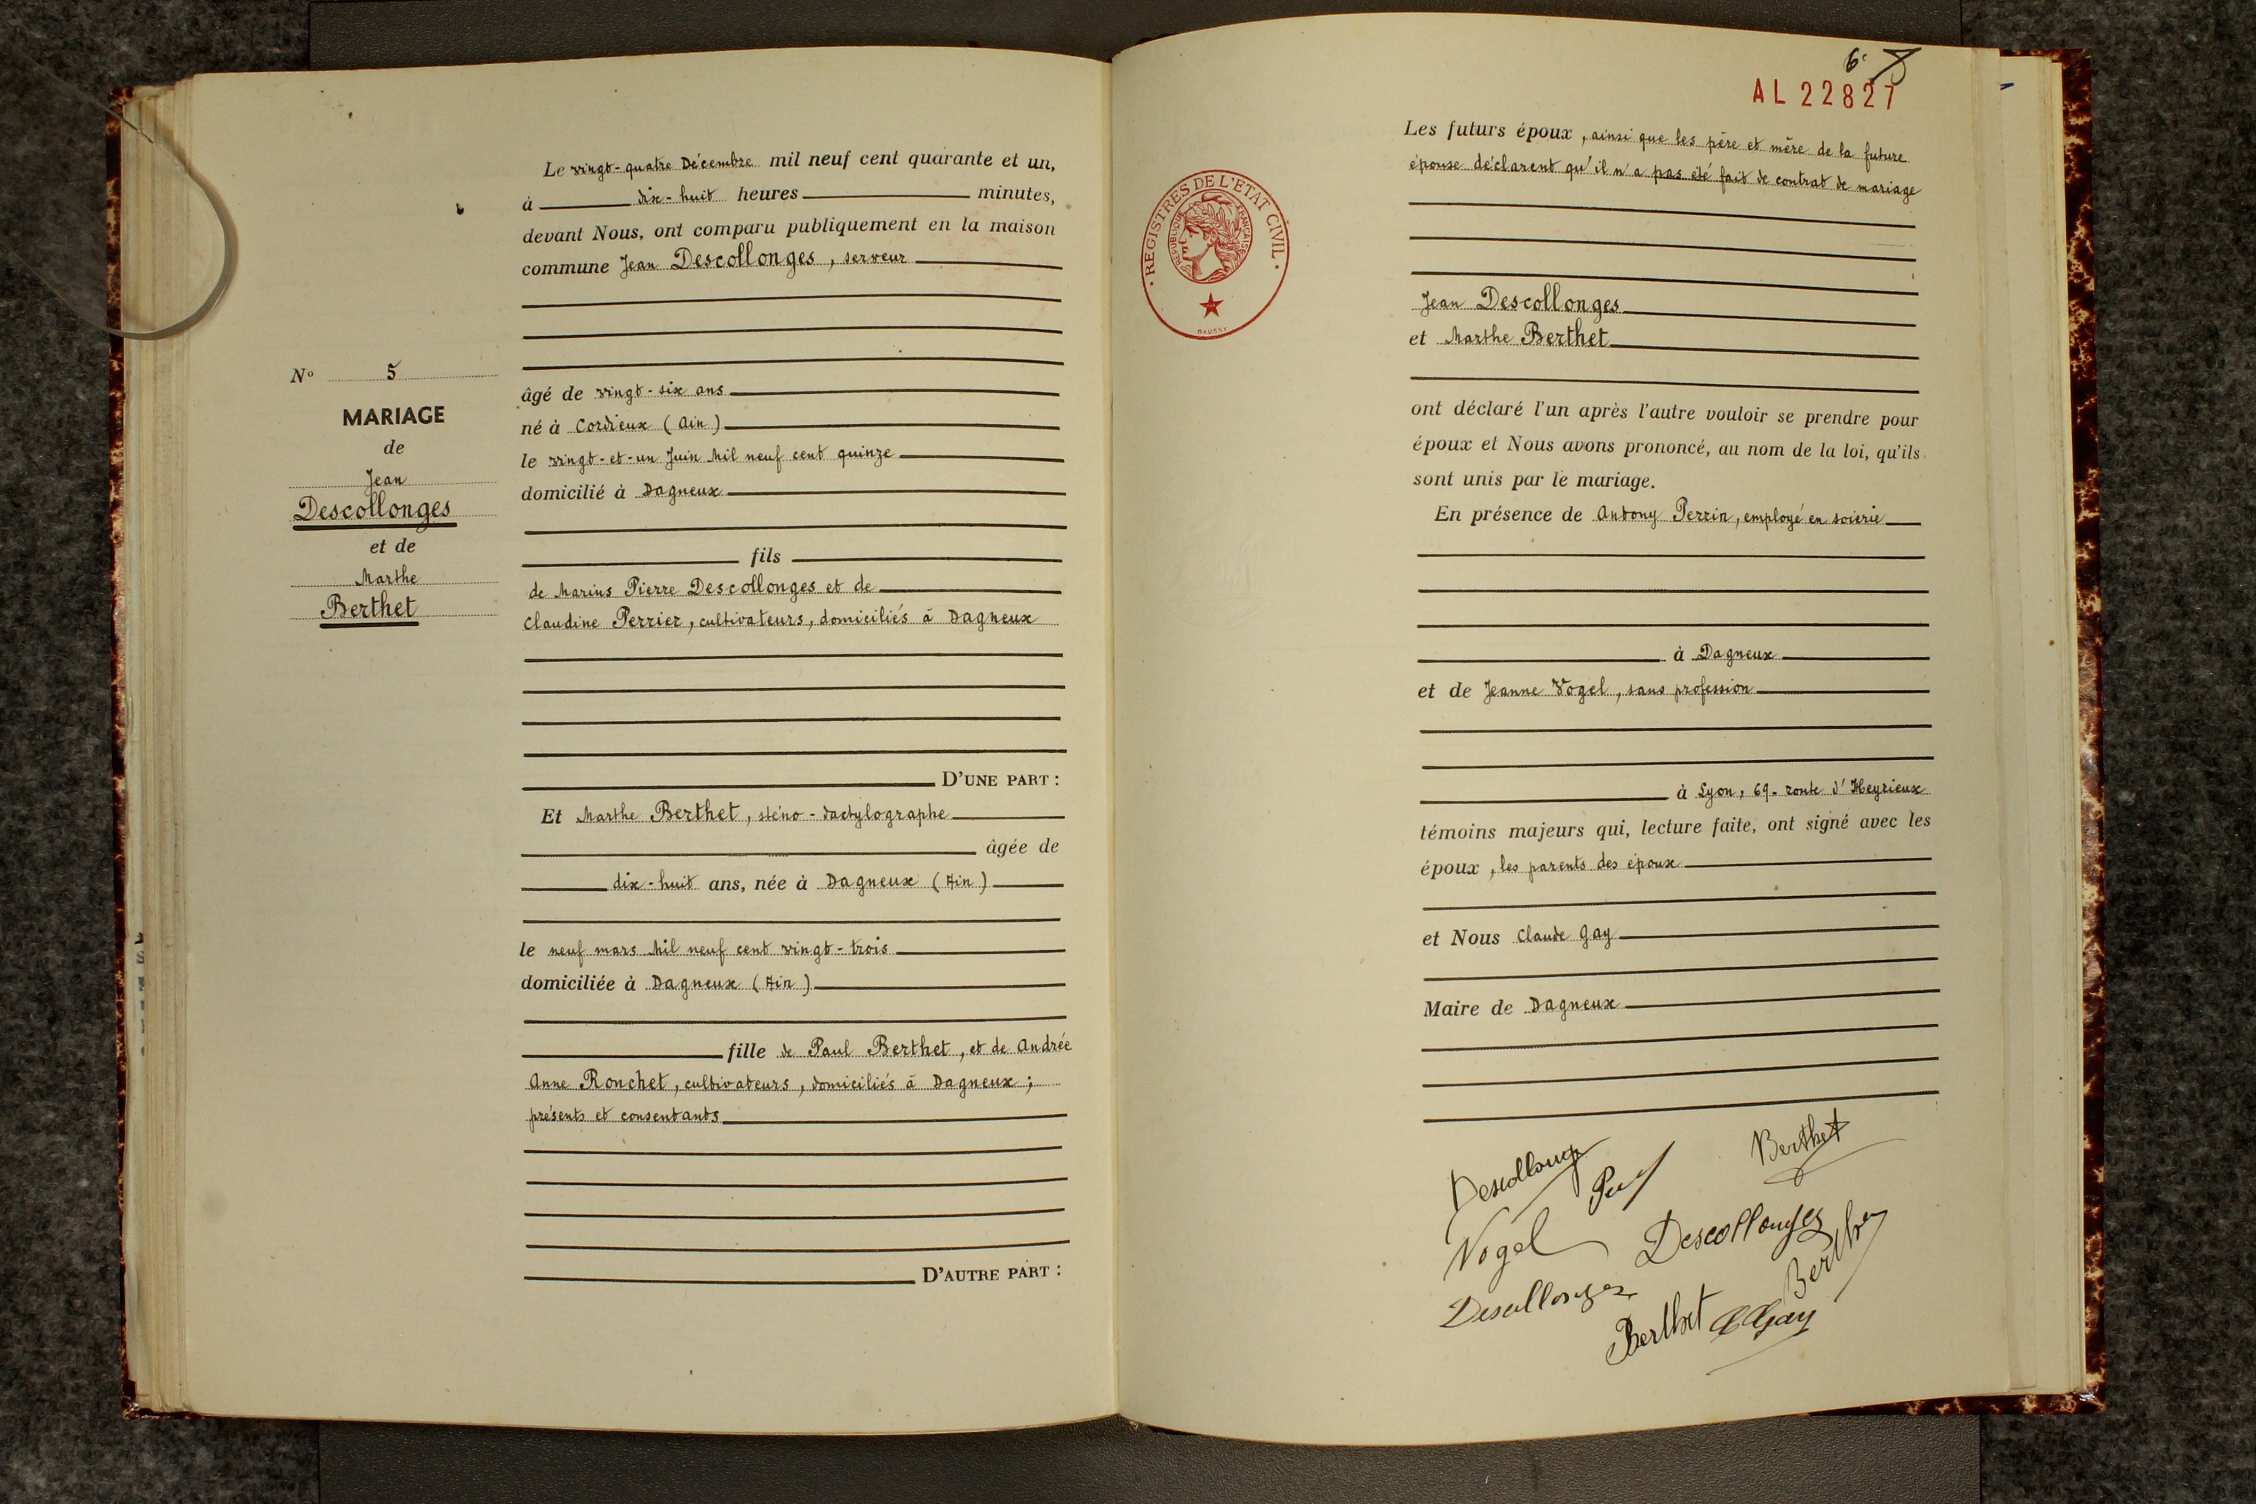 Le vingt-quatre Décembre mil neuf cent quarante et un,
à dix-huit heures minutes,
devant Nous, ont comparu publiquement en la maison
commune Jean Descollonges, serveur
N° 5
MARIAGE
de
Jean
Descollonges
et de
Marthe
Berthet
âgé de vingt-six ans
né à Cordieux (Ain)
le vingt-et-un Juin Mil neuf cent quinze
domicilié à Dagneux
fils
de Marius Pierre Descollonges et de
Claudine Perrier, cultivateurs, domiciliés à Dagneux
D'UNE PART :
Et Marthe Berthet, sténo-dactylographe
âgée de
dix-huit ans, née à Dagneux (Ain)
le neuf mars Mil neuf cent vingt-trois
domiciliée à Dagneux (Ain)
fille de Paul Berthet, et de Andrée
Anne Ronchet, cultivateurs, domiciliés à Dagneux ;
présents et consentants
D'AUTRE PART :
6.
AL 22827
REGISTRES DE L'ETAT CIVIL
REPUBLIQUE FRANÇAISE
Les futurs époux, ainsi que les père et mère de la future
épouse déclarent qu'il n'a pas été fait de contrat de mariage
Jean Descollonges
et Marthe Berthet
ont déclaré l'un après l'autre vouloir se prendre pour
époux et Nous avons prononcé, au nom de la loi, qu'ils
sont unis par le mariage.
En présence de Antony Perrin, employé en soierie
à Dagneux
et de Jeanne Vogel, sans profession
à Lyon, 69. route d'Heyrieux
témoins majeurs qui, lecture faite, ont signé avec les
époux, les parents des époux
et Nous Claude Gay
Maire de Dagneux
Descollonges
Berthet
Vogel
Descollonges
Berthet
Descollonges
Berthet
CGay